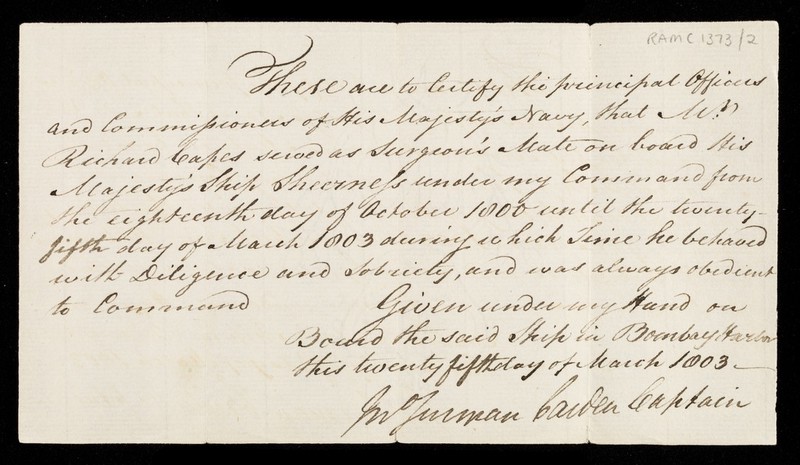 RAMC 1373/2
These are to Certify the principal Officers
and Commissioners of His Majesty's Navy, that Mr.
Richard Capes served as Surgeon's Mate on board His
Majesty's Ship Sheerness under my Command from
the eighteenth day of October 1800 until the twenty-
fifth day of March 1803 during which Time he behaved
with Diligence and Sobriety, and was always obedient
to Command
Given under my Hand on
Board the said Ship in Bombay Harbor
this twenty fifth day of March 1803
Jno Surman Carden Captain